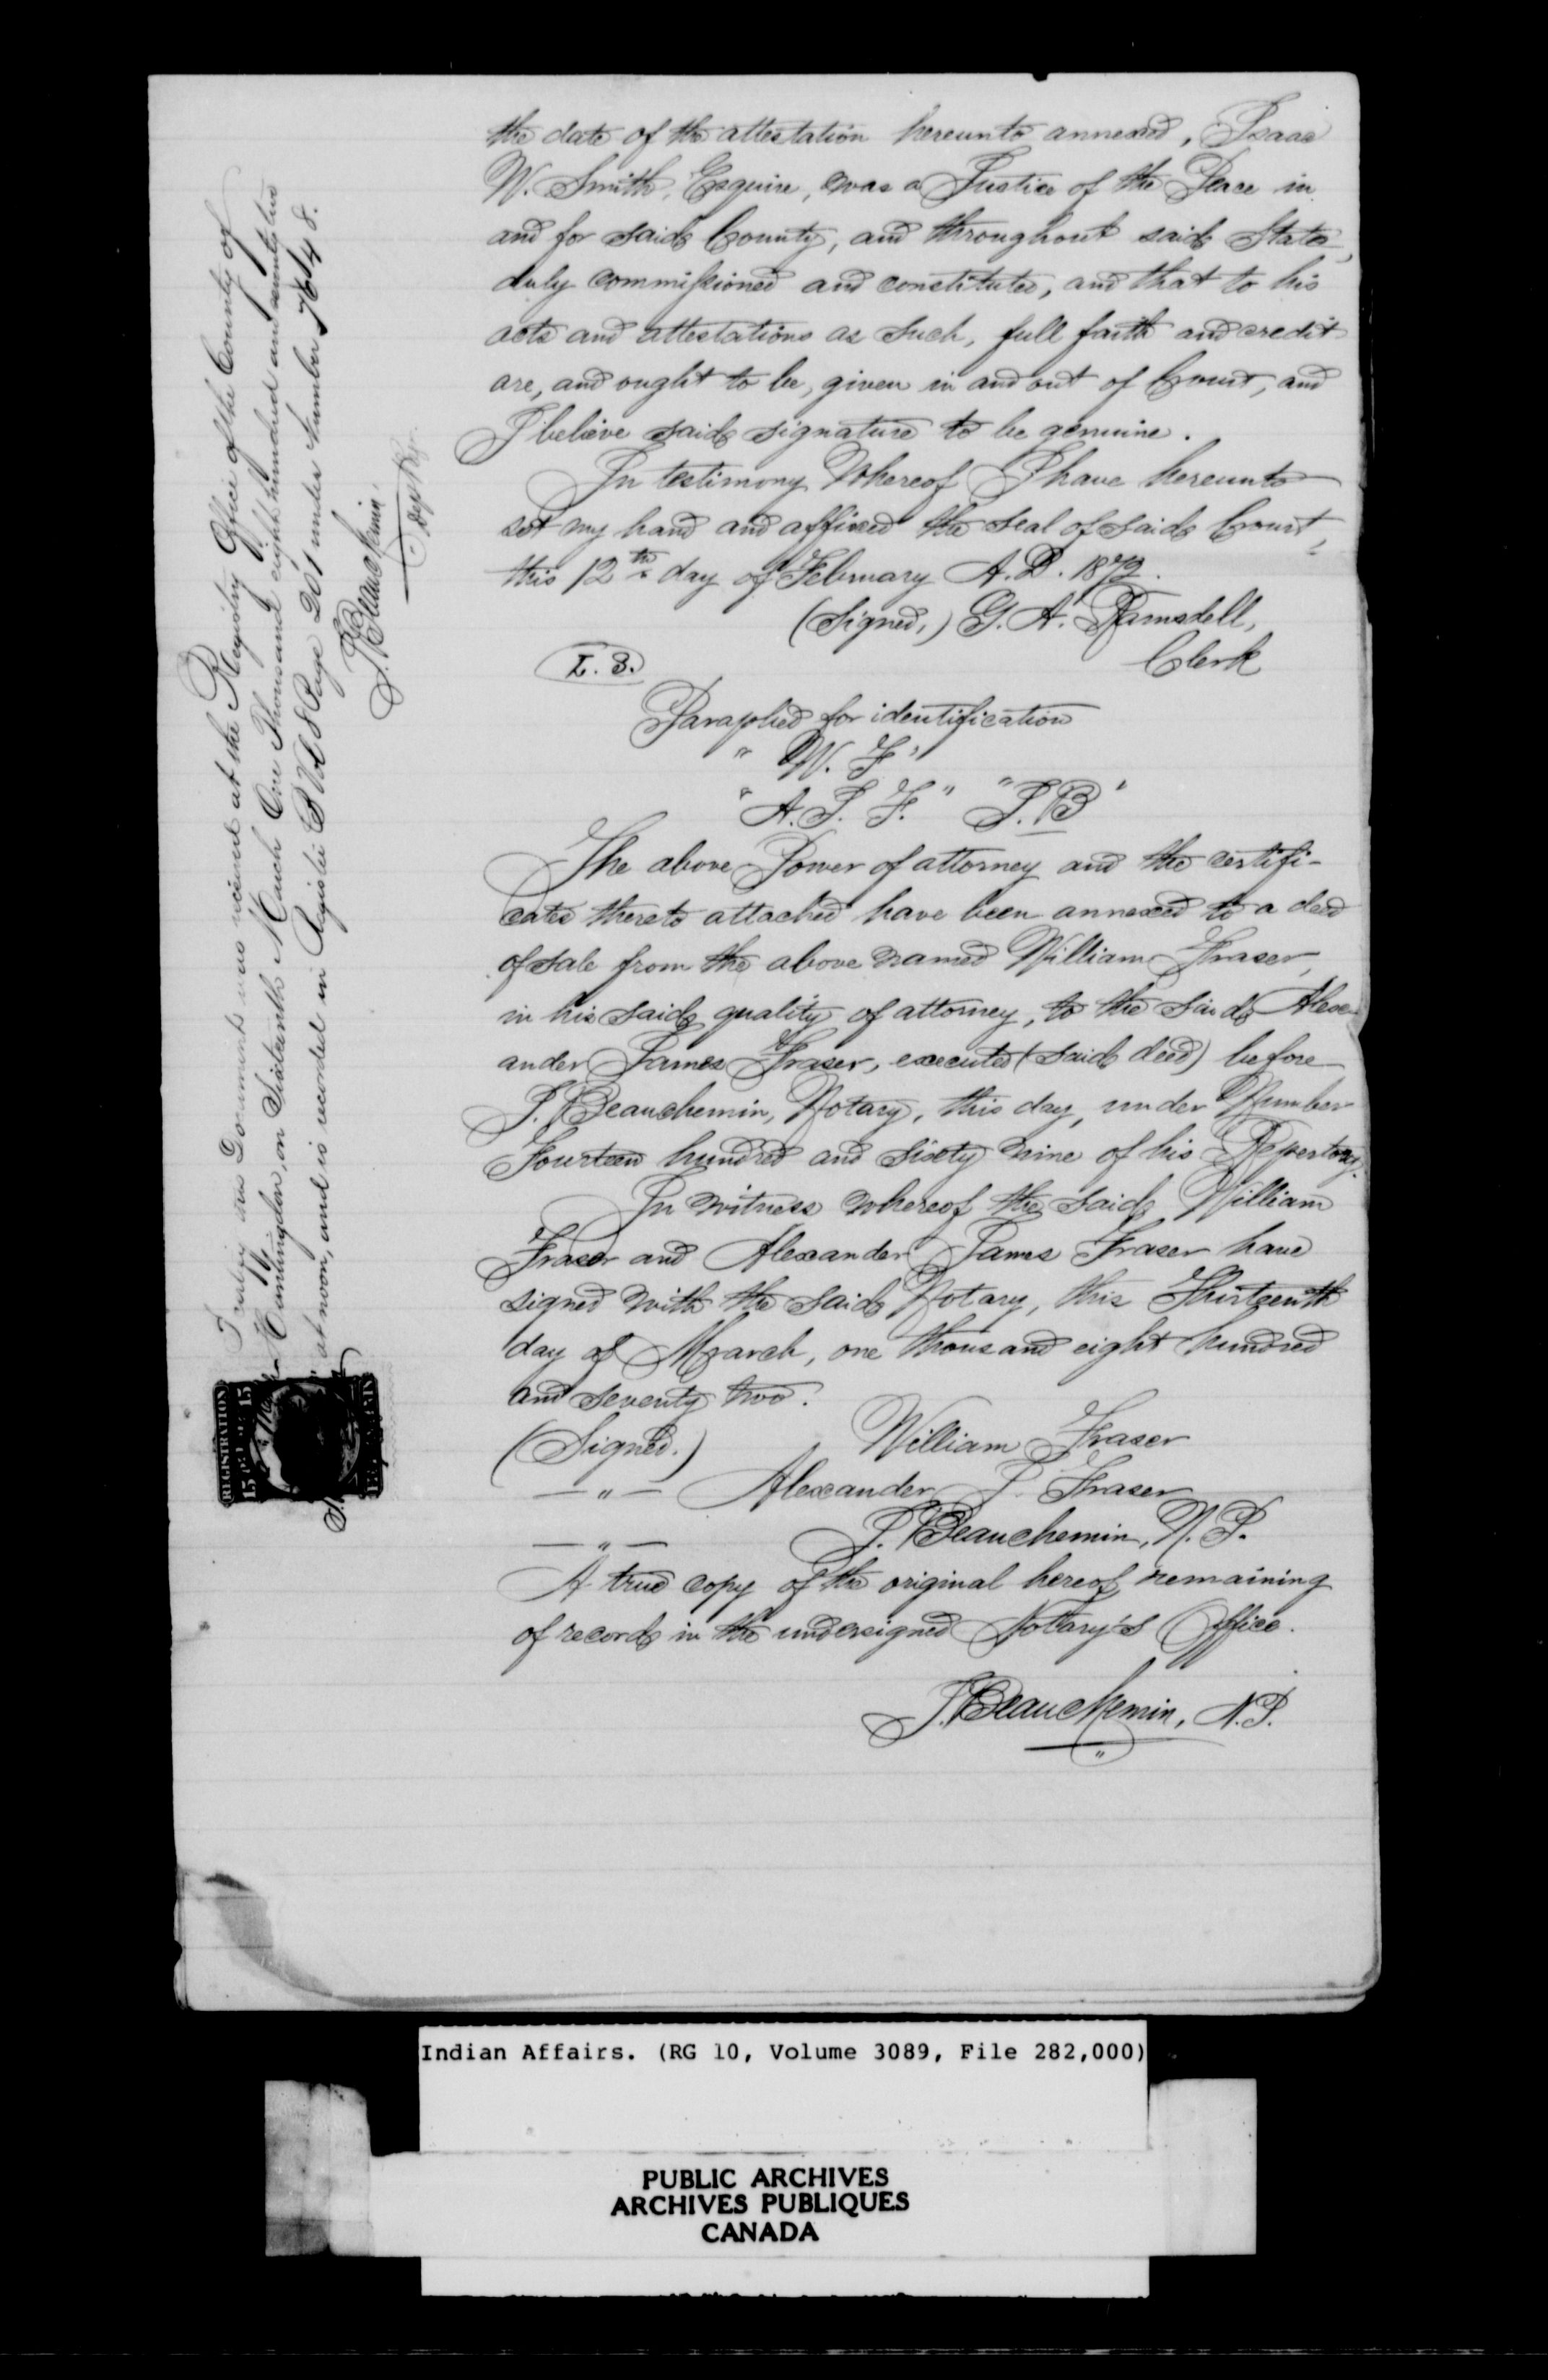 the date of the attestation hereunto annexed, Isaac
W. Smith, Esquire, was a Justice of the Peace in
and for said County, and throughout said State,
duly commissioned and constituted, and that to his
acts and attestations as such, full faith and credit
are, and ought to be, given in and out of Court, and
I believe said signature to be genuine.
In testimony Whereof I have hereunto
set my hand and affixed the seal of said Court,
this 12th day of February A.D. 1872.
(Signed,) G. A. Ramsdell,
Clerk
L. S.
Paraphed for identification
" W. F"
"A. J. F." "J. B"
The above Power of attorney and the certifi-
cates thereto attached have been annexed to a deed
of sale from the above named William Fraser,
in his said quality of attorney, to the said Alex-
ander James Fraser, executed (said deed) before
J. Beauchemin, Notary, this day, under Number
Fourteen hundred and sixty nine of his Repertory.
In witness whereof the said William
Fraser and Alexander James Fraser have
signed with the said Notary, this Thirteenth
day of March, one thousand eight hundred
and seventy two.
(Signed.) William Fraser
— " — Alexander J. Fraser
— " — J. Beauchemin, N. P.
A true copy of the original hereof remaining
of record in the undersigned Notary's Office.
J. Beauchemin, N. P.
I certify this Document was received at the Registry Office of the County of
Huntingdon, on Sixteenth March One Thousand eight hundred and seventy two
at noon, and is recorded in Register B Vol 8 Page 201 under Number 7648.
J. Beauchemin,
Dep Rgr.
REGISTRATION
15 15
Indian Affairs. (RG 10, Volume 3089, File 282,000)
PUBLIC ARCHIVES
ARCHIVES PUBLIQUES
CANADA